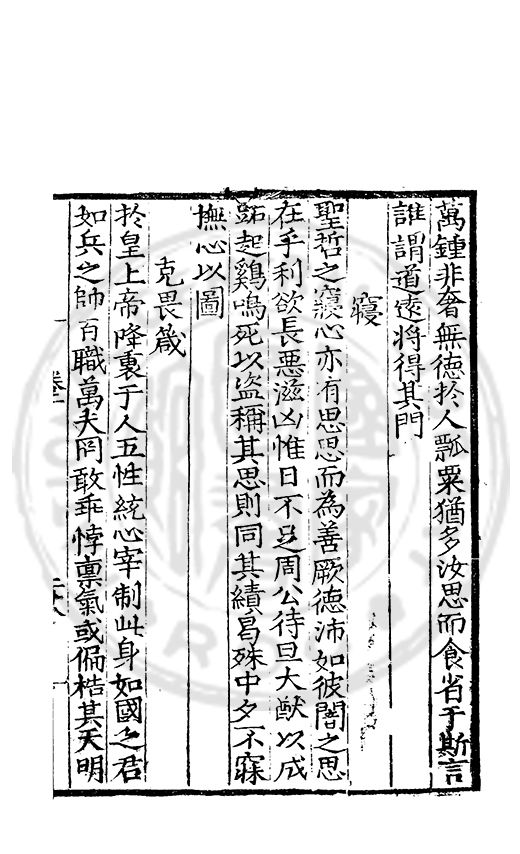 萬鍾非奢無德扵人瓢粟猶多汝思而食省于斯言
誰謂道遠将得其門
寢
聖哲之寢心亦有思思而為善厥德沛如彼闇之思
在乎利欲長惡滋凶惟日不足周公待旦大猷以成
跖起鷄鳴死以盗稱其思則同其績曷殊中夕不寐
撫心以圖
克畏箴
扵皇上帝降衷于人五性統心宰制此身如國之君
如兵之帥百職萬夫罔敢乖悖禀氣或偏梏其天明